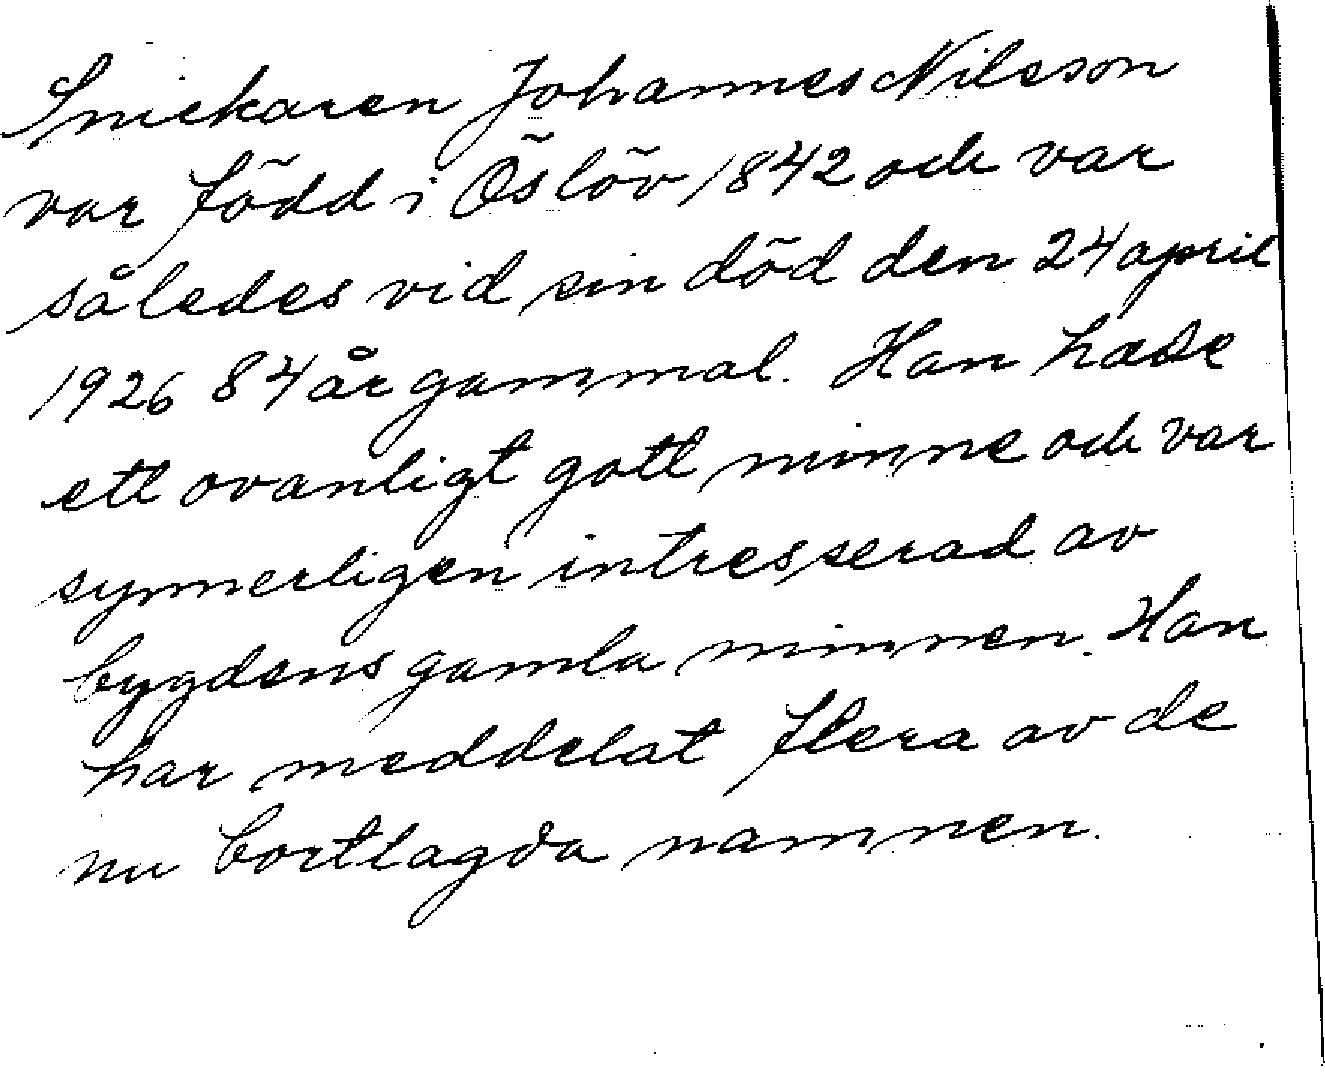 Snickaren Johannes Nilsson
var född i Öslöv 1842 och var
således vid sin död den 24 april
1926 84 år gammal. Han hade
ett ovanligt gott minne och var
synnerligen intresserad av
bygdens gamla minnen. Han
har meddelat flera av de
nu bortlagda namnen.